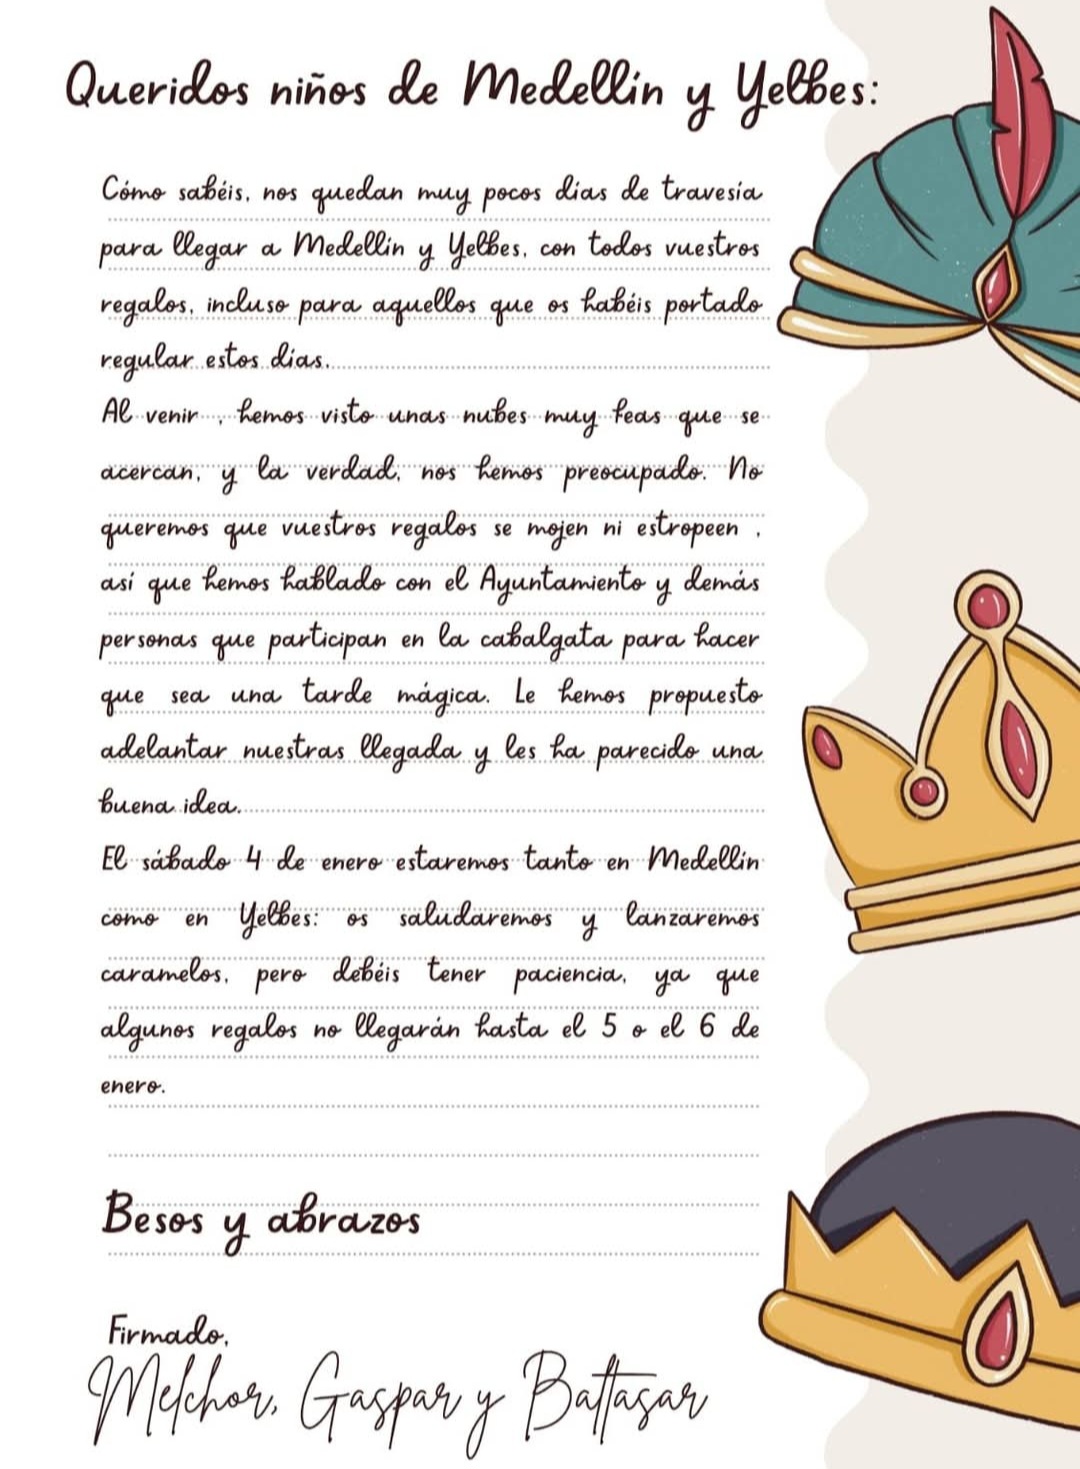 Queridos niños de Medellín y Yelbes:
Cómo sabéis, nos quedan muy pocos dias de travesia
para llegar a Medellin y Yelbes, con todos vuestros
regalos, incluso para aquellos que os habéis portado
regular estos dias.
Al venir , hemos visto unas nubes muy feas que se
acercan, y la verdad, nos hemos preocupado. No
queremos que vuestros regalos se mojen ni estropeen ,
así que hemos hablado con el Ayuntamiento y demás
personas que participan en la cabalgata para hacer
que sea una tarde mágica. Le hemos propuesto
adelantar nuestras llegada y les ha parecido una
buena idea.
El sábado 4 de enero estaremos tanto en Medellin
como en Yelbes: os saludaremos y lanzaremos
caramelos, pero debéis tener paciencia, ya que
algunos regalos no llegarán hasta el 5 o el 6 de
enero.
Besos y abrazos
Firmado,
Melchor, Gaspar y Baltasar